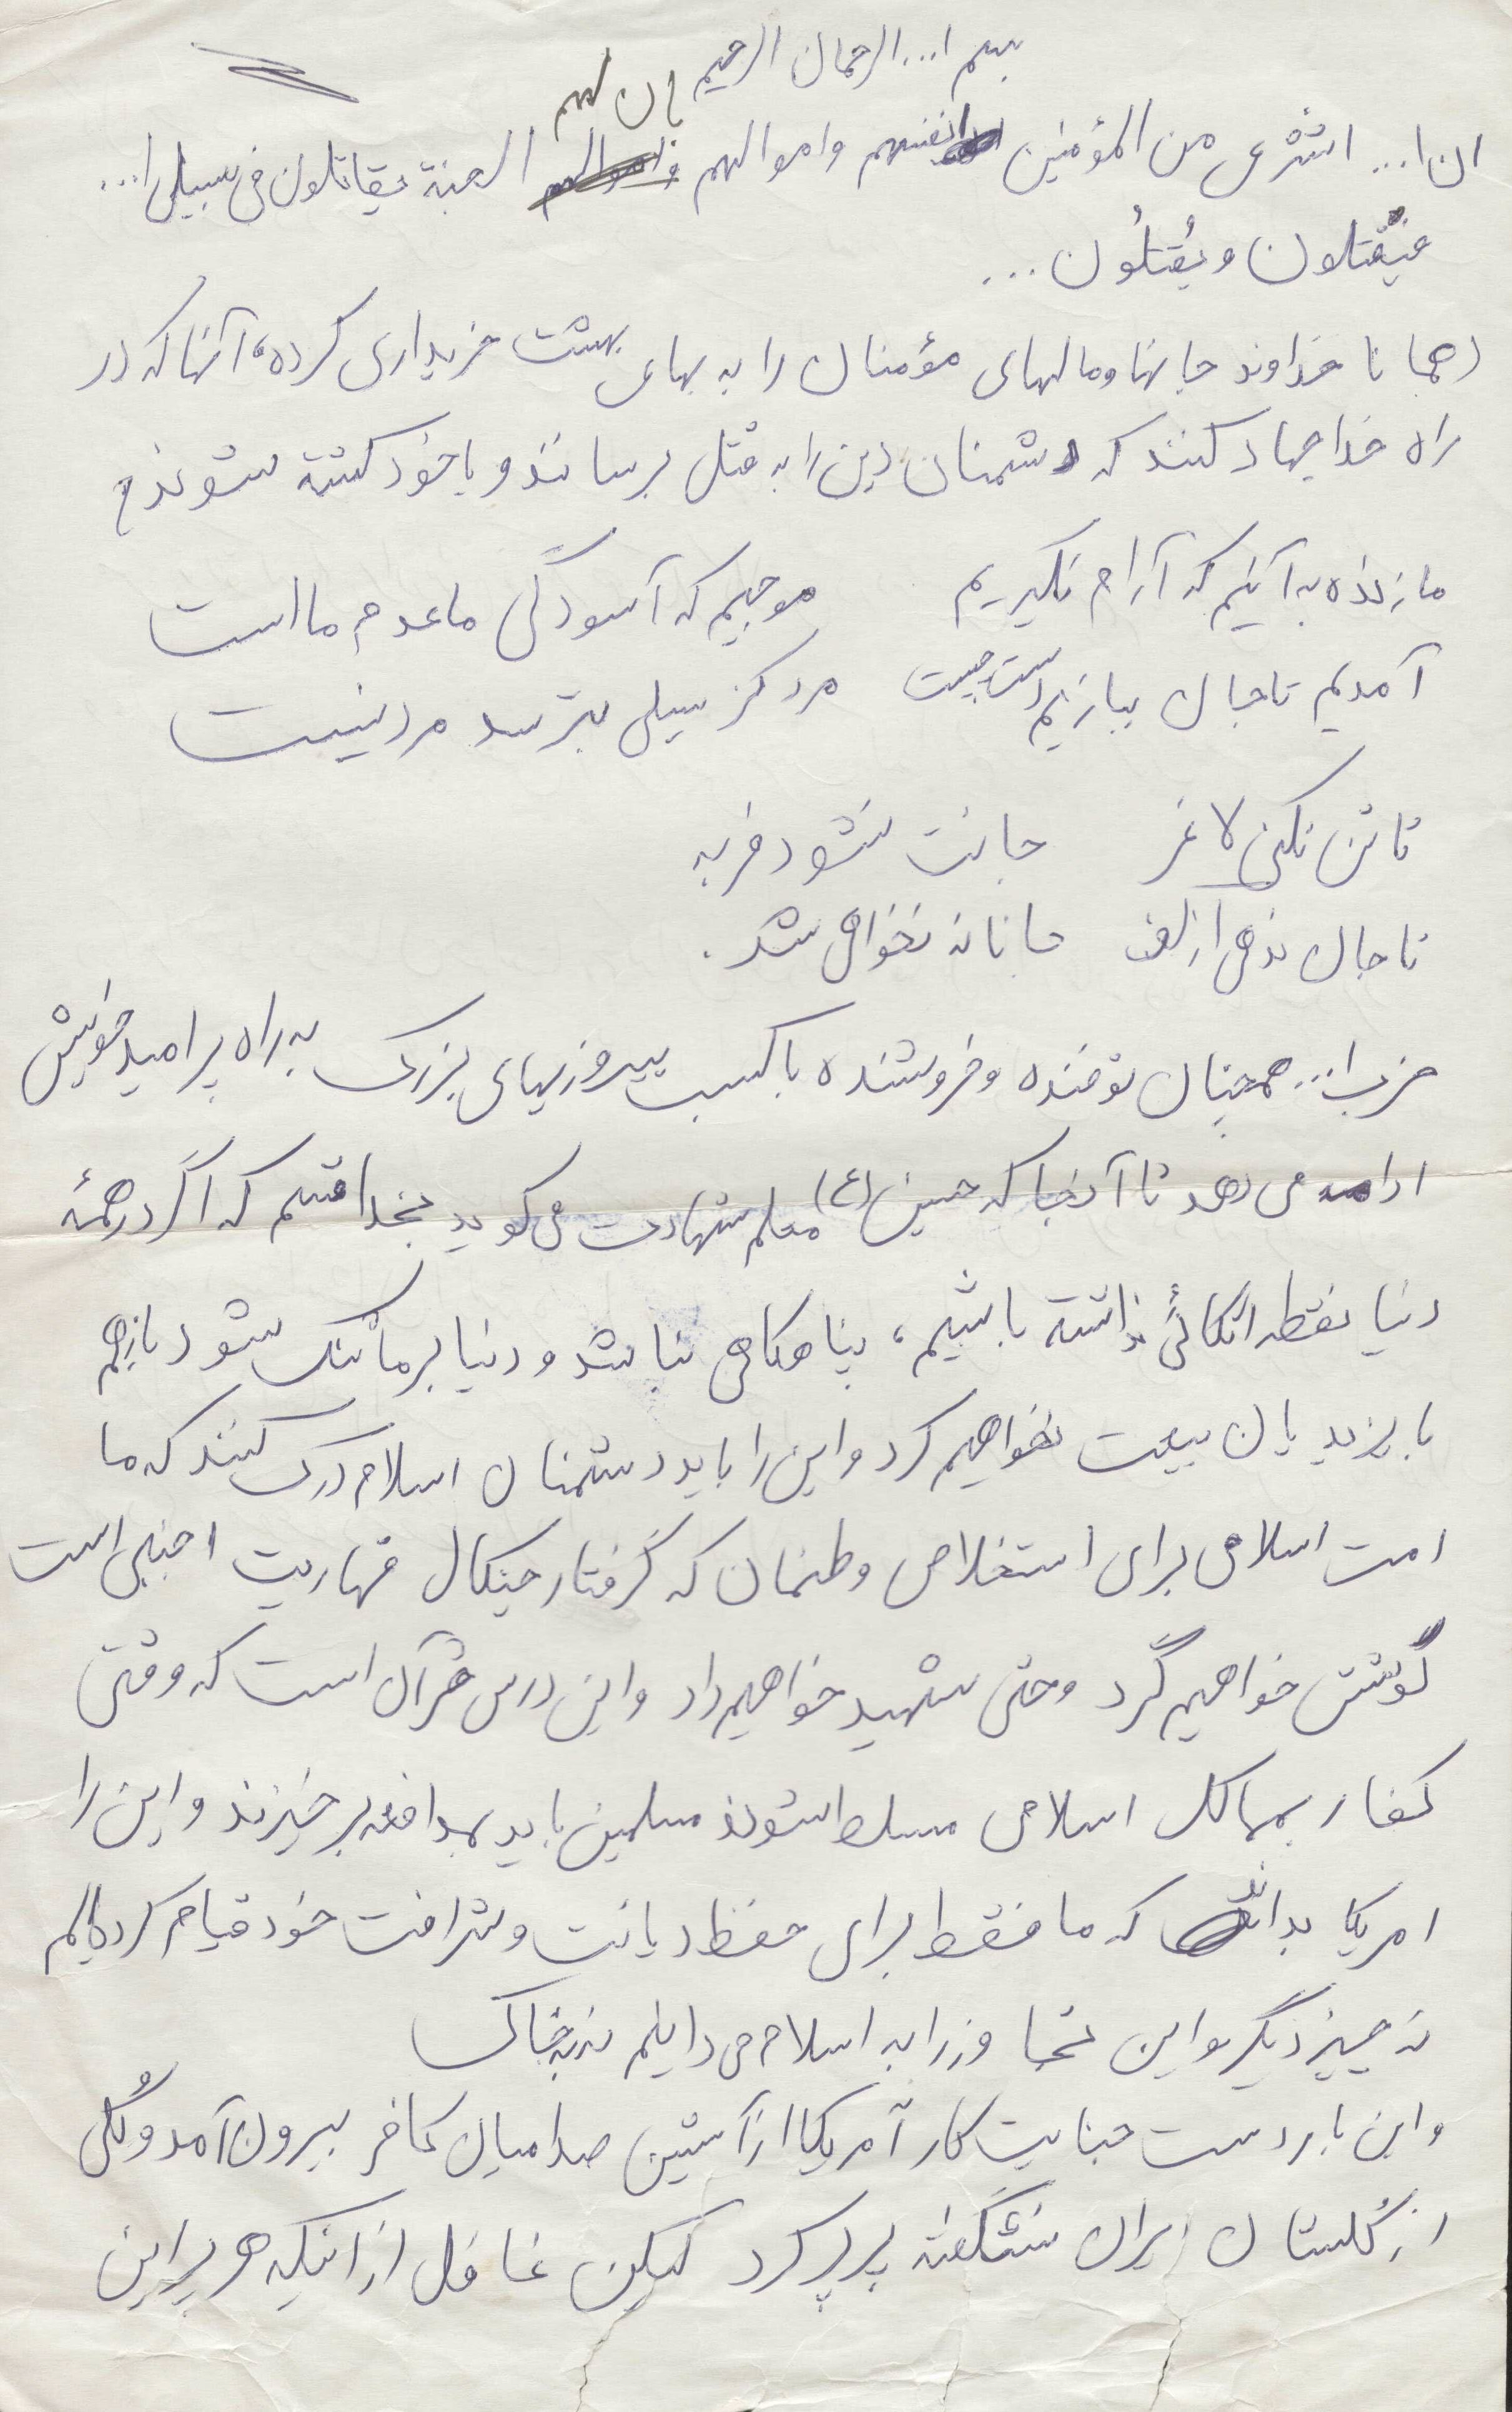 بسم ا... الرحمان الرحیم
ان ا... اشتری من المؤمنین انفسهم واموالهم بان لهم الجنة یقاتلون فی سبیل ا...
فیقتلون ویُقتلُون ...
(همانا خداوند جانها ومالهای مؤمنان را به بهای بهشت خریداری کرده، آنها که در
راه خدا جهاد کنند که دشمنان دین را به قتل برسانند و یا خود کشته شوند)
ما زنده به آنیم که آرام نگیریم موجیم که آسودگی ما عدم ما است
آمدیم تا جان ببازیم دست چیست مرد کز سیلی بترسد مرد نیست
تا تن نکنی لاغر جانت نشود فربه
تا جان ندهی از کف جانانه نخواهی شد.
حزب ا... همچنان توفنده وخروشنده با کسب پیروزیهای بزرگ به راه پر امید خویش
ادامه می دهد تا آنجا که حسین (ع) معلم شهادت می گوید بخدا قسم که اگر در همهٔ
دنیا نقطه اتکائی نداشته باشیم، پناهگاهی نباشد و دنیا بر ما تنگ شود باز هم
با یزیدیان بیعت نخواهیم کرد و این را باید دشمنان اسلام درک کنند که ما
امت اسلامی برای استخلاص وطنمان که گرفتار چنگال قهاریت اجنبی است
کوشش خواهیم کرد وحتی شهید خواهیم داد واین درس قرآن است که وقتی
کفار بممالک اسلامی مسلط شوند مسلمین باید بمدافعه برخیزند و این را
امریکا بداند که ما فقط برای حفظ دیانت وشرافت خود قیام کرده‌ایم
نه چیز دیگر واین تجاوز را به اسلام می دانیم نه به خاک
واین بار دست جنایت کار آمریکا از آستین صدامیان کافر بیرون آمد و گُلی
از گلستان ایران نشکفته پرپر کرد لیکن غافل از اینکه هر پر این